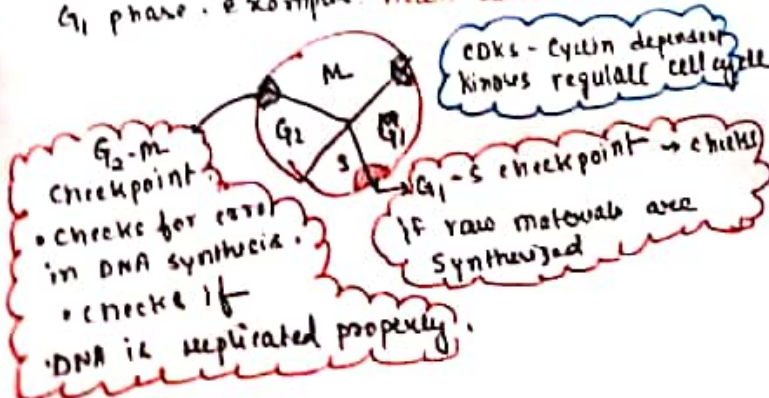 G₁ phase. example
CDKs - Cyclin dependent
kinases regulate cell cycle
M
G₂
G₁
S
G₂-M
Checkpoint.
• Checks for error
in DNA synthesis.
• checks if
•DNA is replicated properly.
G₁-S checkpoint → checks
if raw materials are
synthesized